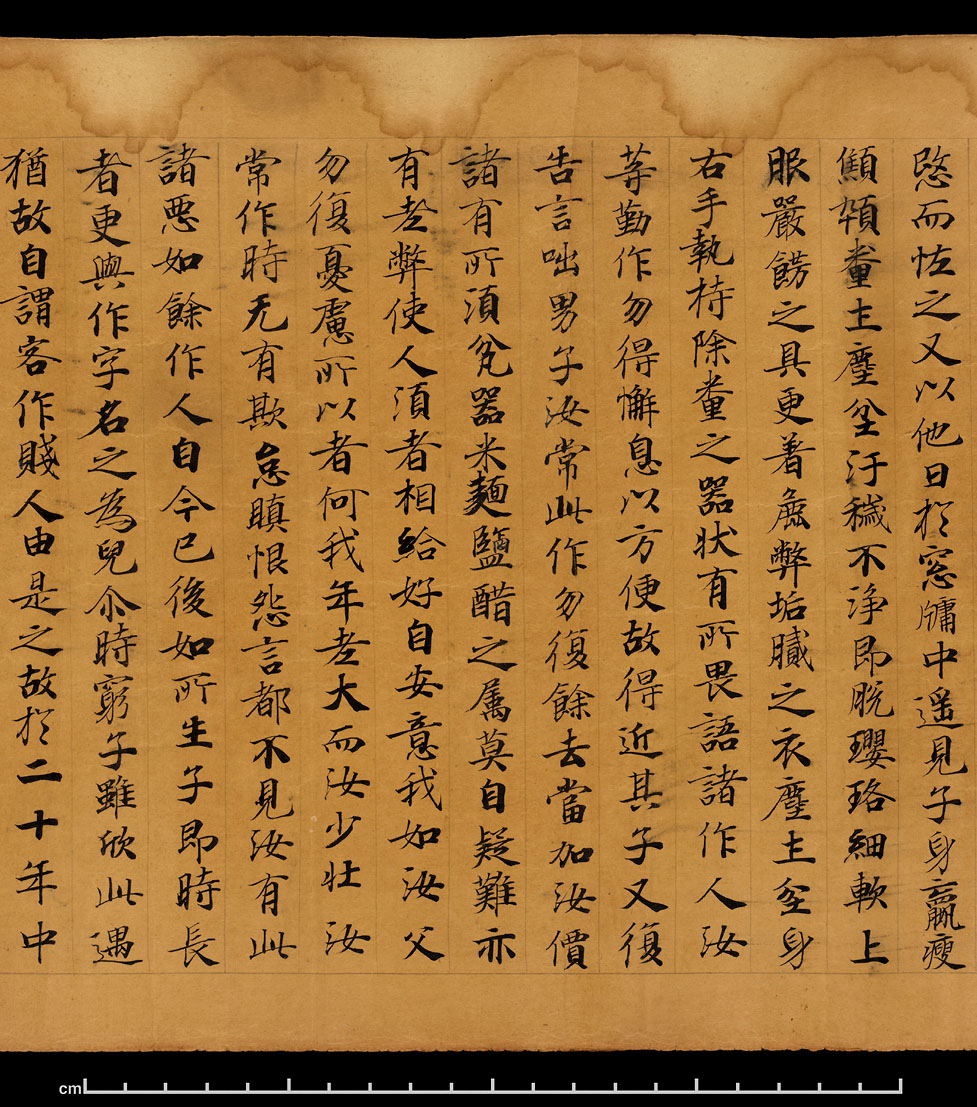 愍而怪之又以他日於窓牖中遥見子身羸瘦
顦顇糞土塵坌汙穢不净即脱瓔珞細軟上
服嚴餝之具更著麁弊垢膩之衣塵土坌身
右手執持除糞之器状有所畏語諸作人汝
等勤作勿得懈息以方便故得近其子又復
告言咄男子汝常此作勿復餘去當加汝價
諸有所湏瓫器米麺鹽醋之属莫自疑難亦
有老弊使人湏者相給好自安意我如汝父
勿復憂慮所以者何我年老大而汝少壮汝
常作時无有欺怠瞋恨怨言都不見汝有此
諸悪如餘作人自今已後如所生子即時長
者更與作字名之為兒尒時窮子雖欣此遇
猶故自謂客作賤人由是之故於二十年中
cm